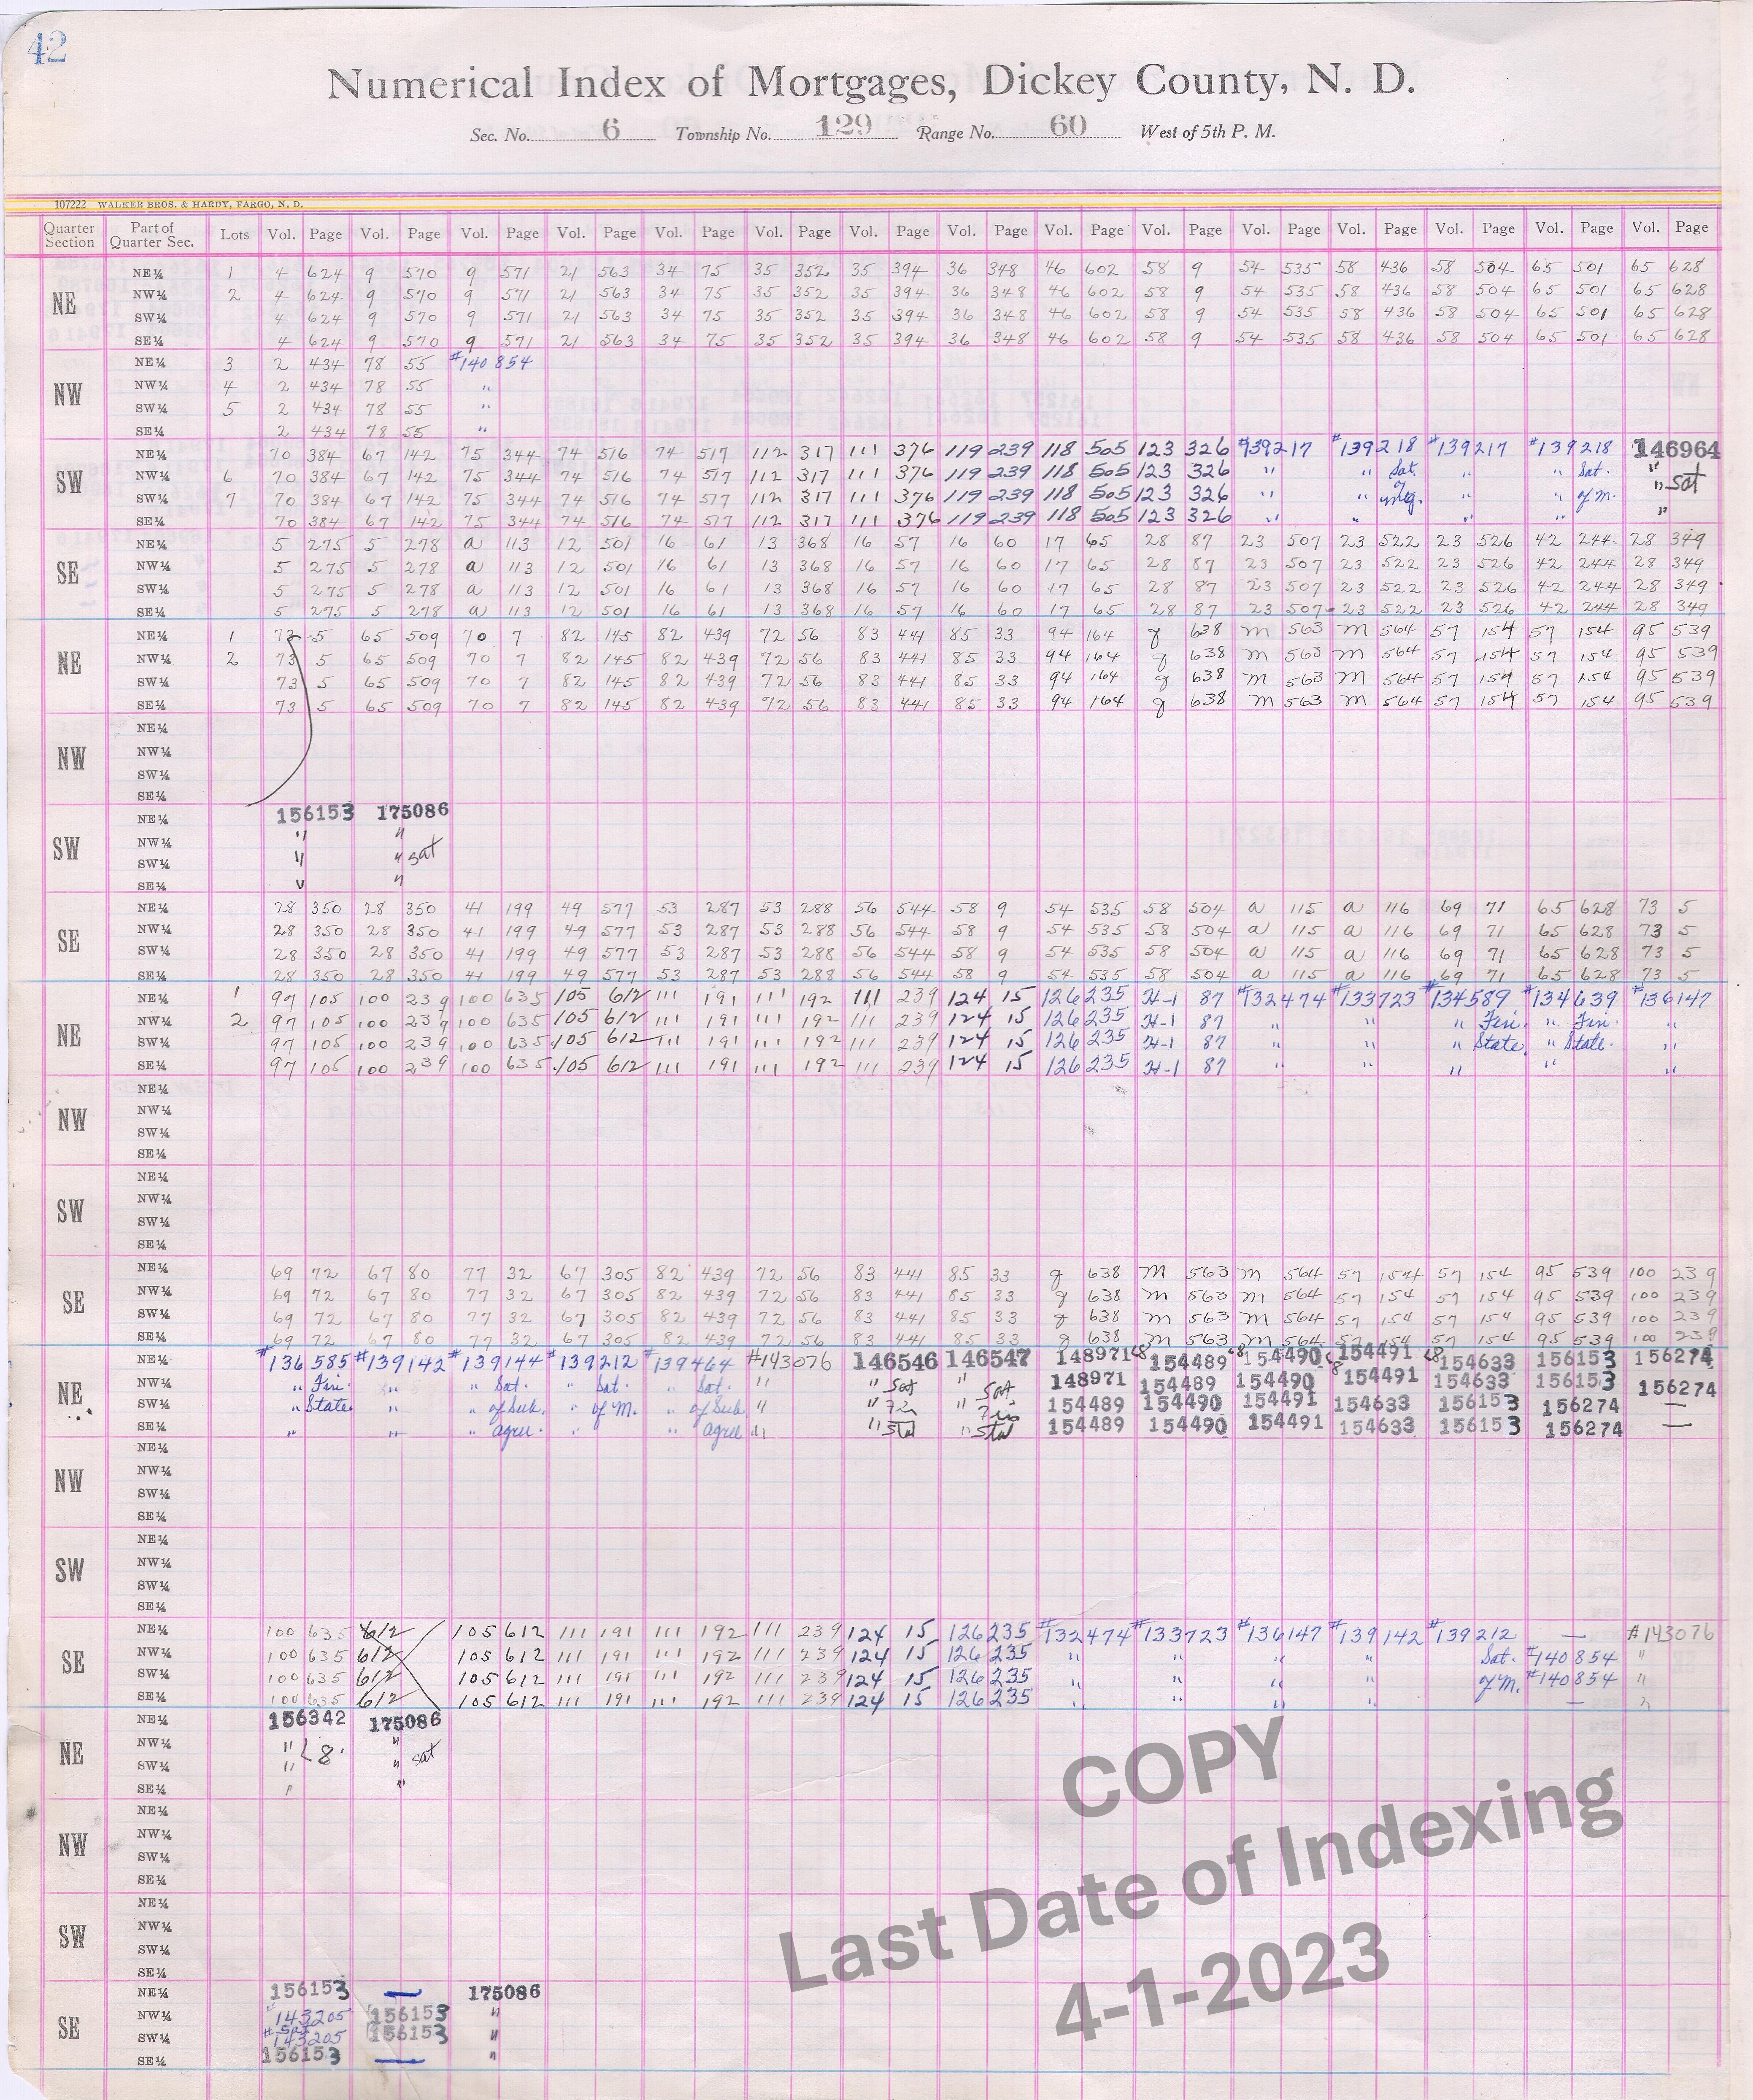 42
Numerical Index of Mortgages, Dickey County, N. D.
Sec. No. 6 Township No. 129 Range No. 60 West of 5th P. M.
107222 WALKER BROS. & HARDY, FARGO, N. D.
Quarter Section Part of Quarter Sec. Lots Vol. Page Vol. Page Vol. Page Vol. Page Vol. Page Vol. Page Vol. Page Vol. Page Vol. Page Vol. Page Vol. Page Vol. Page Vol. Page Vol. Page Vol. Page
NE
NE¼ 1 4 624 9 570 9 571 21 563 34 75 35 352 35 394 36 348 46 602 58 9 54 535 58 436 58 504 65 501 65 628
NW¼ 2 4 624 9 570 9 571 21 563 34 75 35 352 35 394 36 348 46 602 58 9 54 535 58 436 58 504 65 501 65 628
SW¼ 4 624 9 570 9 571 21 563 34 75 35 352 35 394 36 348 46 602 58 9 54 535 58 436 58 504 65 501 65 628
SE¼ 4 624 9 570 9 571 21 563 34 75 35 352 35 394 36 348 46 602 58 9 54 535 58 436 58 504 65 501 65 628
NW
NE¼ 3 2 434 78 55 #140854
NW¼ 4 2 434 78 55 "
SW¼ 5 2 434 78 55 "
SE¼ 2 434 78 55 "
SW
NE¼ 70 384 67 142 75 344 74 516 74 517 112 317 111 376 119 239 118 505 123 326 #139217 #139218 #139217 #139218 146964
NW¼ 6 70 384 67 142 75 344 74 516 74 517 112 317 111 376 119 239 118 505 123 326 " " Sat. " " Sat. "
SW¼ 7 70 384 67 142 75 344 74 516 74 517 112 317 111 376 119 239 118 505 123 326 " " of mtg. " " of M. " Sat
SE¼ 70 384 67 142 75 344 74 516 74 517 112 317 111 376 119 239 118 505 123 326 " " " " "
SE
NE¼ 5 275 5 278 a 113 12 501 16 61 13 368 16 57 16 60 17 65 28 87 23 507 23 522 23 526 42 244 28 349
NW¼ 5 275 5 278 a 113 12 501 16 61 13 368 16 57 16 60 17 65 28 87 23 507 23 522 23 526 42 244 28 349
SW¼ 5 275 5 278 a 113 12 501 16 61 13 368 16 57 16 60 17 65 28 87 23 507 23 522 23 526 42 244 28 349
SE¼ 5 275 5 278 a 113 12 501 16 61 13 368 16 57 16 60 17 65 28 87 23 507 23 522 23 526 42 244 28 349
NE
NE¼ 1 73 5 65 509 70 7 82 145 82 439 72 56 83 441 85 33 94 164 g 638 m 563 m 564 57 154 57 154 95 539
NW¼ 2 73 5 65 509 70 7 82 145 82 439 72 56 83 441 85 33 94 164 g 638 m 563 m 564 57 154 57 154 95 539
SW¼ 73 5 65 509 70 7 82 145 82 439 72 56 83 441 85 33 94 164 g 638 m 563 m 564 57 154 57 154 95 539
SE¼ 73 5 65 509 70 7 82 145 82 439 72 56 83 441 85 33 94 164 g 638 m 563 m 564 57 154 57 154 95 539
NW
NE¼
NW¼
SW¼
SE¼
SW
NE¼ 156153 175086
NW¼ " "
SW¼ " " sat
SE¼ "
SE
NE¼ 28 350 28 350 41 199 49 577 53 287 53 288 56 544 58 9 54 535 58 504 a 115 a 116 69 71 65 628 73 5
NW¼ 28 350 28 350 41 199 49 577 53 287 53 288 56 544 58 9 54 535 58 504 a 115 a 116 69 71 65 628 73 5
SW¼ 28 350 28 350 41 199 49 577 53 287 53 288 56 544 58 9 54 535 58 504 a 115 a 116 69 71 65 628 73 5
SE¼ 28 350 28 350 41 199 49 577 53 287 53 288 56 544 58 9 54 535 58 504 a 115 a 116 69 71 65 628 73 5
NE
NE¼ 1 97 105 100 239 100 635 105 612 111 191 111 192 111 239 124 15 126 235 H-1 87 #132474 #133723 #134589 #134639 #136147
NW¼ 2 97 105 100 239 100 635 105 612 111 191 111 192 111 239 124 15 126 235 H-1 87 " " " Fin. " Fin. "
SW¼ 97 105 100 239 100 635 105 612 111 191 111 192 111 239 124 15 126 235 H-1 87 " " " State. " State. "
SE¼ 97 105 100 239 100 635 105 612 111 191 111 192 111 239 124 15 126 235 H-1 87 " " " " "
NW
NE¼
NW¼
SW¼
SE¼
SW
NE¼
NW¼
SW¼
SE¼
SE
NE¼ 69 72 67 80 77 32 67 305 82 439 72 56 83 441 85 33 g 638 m 563 m 564 57 154 57 154 95 539 100 239
NW¼ 69 72 67 80 77 32 67 305 82 439 72 56 83 441 85 33 g 638 m 563 m 564 57 154 57 154 95 539 100 239
SW¼ 69 72 67 80 77 32 67 305 82 439 72 56 83 441 85 33 g 638 m 563 m 564 57 154 57 154 95 539 100 239
SE¼ 69 72 67 80 77 32 67 305 82 439 72 56 83 441 85 33 g 638 m 563 m 564 57 154 57 154 95 539 100 239
NE
NE¼ #136585 #139142 #139144 #139212 #139464 #143076 146546 146547 148971 154489 154490 154491 154633 156153 156274
NW¼ " Fin. " " Sat. " Sat. " Sat. " " Sat " Sat 148971 154489 154490 154491 154633 156153 156274
SW¼ " State " " of Sub. " of M. " of Sub. " " Fin " Fin 154489 154490 154491 154633 156153 156274 —
SE¼ " " " agree. " " agree " " Stat " Stat 154489 154490 154491 154633 156153 156274 —
NW
NE¼
NW¼
SW¼
SE¼
SW
NE¼
NW¼
SW¼
SE¼
SE
NE¼ 100 635 612 105 612 111 191 111 192 111 239 124 15 126 235 #132474 #133723 #136147 #139142 #139212 — #143076
NW¼ 100 635 612 105 612 111 191 111 192 111 239 124 15 126 235 " " " " Sat. #140854 "
SW¼ 100 635 612 105 612 111 191 111 192 111 239 124 15 126 235 " " " " of M. #140854 "
SE¼ 100 635 612 105 612 111 191 111 192 111 239 124 15 126 235 " " " " — "
NE
NE¼ 156342 175086
NW¼ " L8 "
SW¼ " " sat
SE¼ " "
NW
NE¼
NW¼
SW¼
SE¼
SW
NE¼
NW¼
SW¼
SE¼
SE
NE¼ 156153 — 175086
NW¼ "143205 156153 "
SW¼ #143205 156153 "
SE¼ 156153 — "
COPY
Last Date of Indexing
4-1-2023